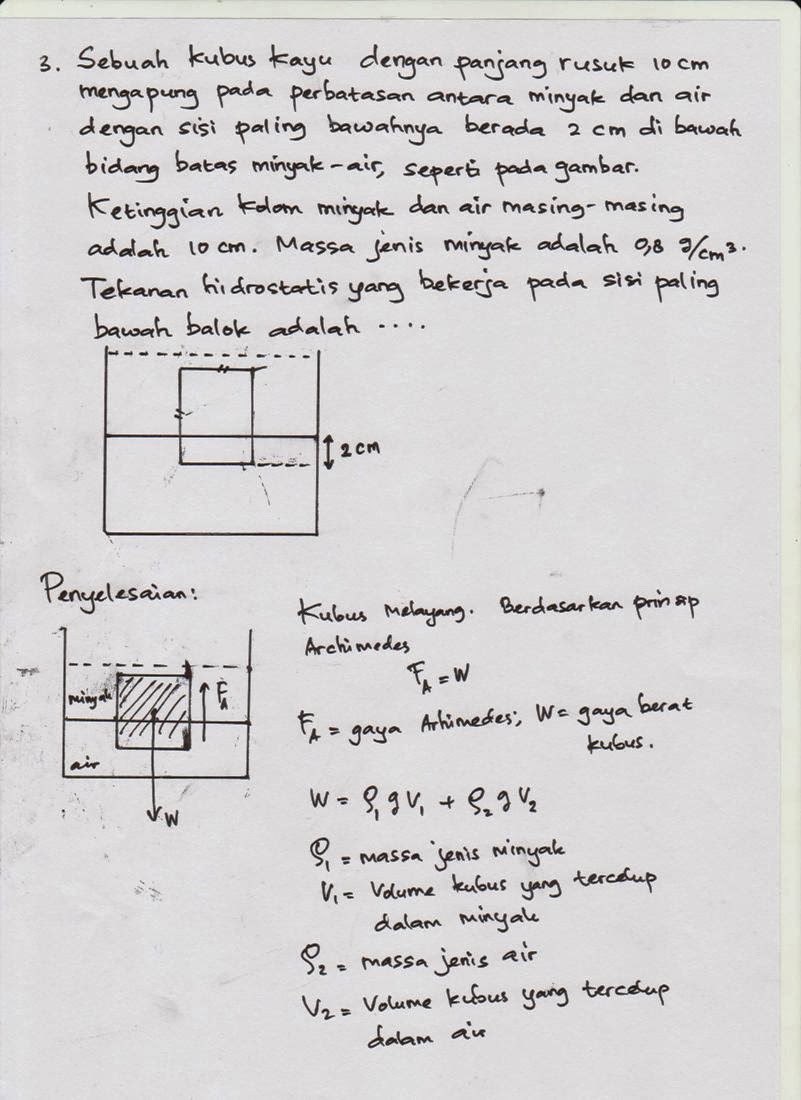 3. Sebuah kubus kayu dengan panjang rusuk 10 cm
mengapung pada perbatasan antara minyak dan air
dengan sisi paling bawahnya berada 2 cm di bawah
bidang batas minyak-air, seperti pada gambar.
Ketinggian kolom minyak dan air masing-masing
adalah 10 cm. Massa jenis minyak adalah 0,8 g/cm³.
Tekanan hidrostatis yang bekerja pada sisi paling
bawah balok adalah ....
2 cm
Penyelesaian:
Kubus Melayang. Berdasarkan prinsip
Archimedes
F_A = W
F_A = gaya Arhimedes; W = gaya berat
kubus.
minyak
F_A
air
W
W = ρ₁ g V₁ + ρ₂ g V₂
ρ₁ = massa jenis minyak
V₁ = Volume kubus yang tercelup
dalam minyak
ρ₂ = massa jenis air
V₂ = Volume kubus yang tercelup
dalam air